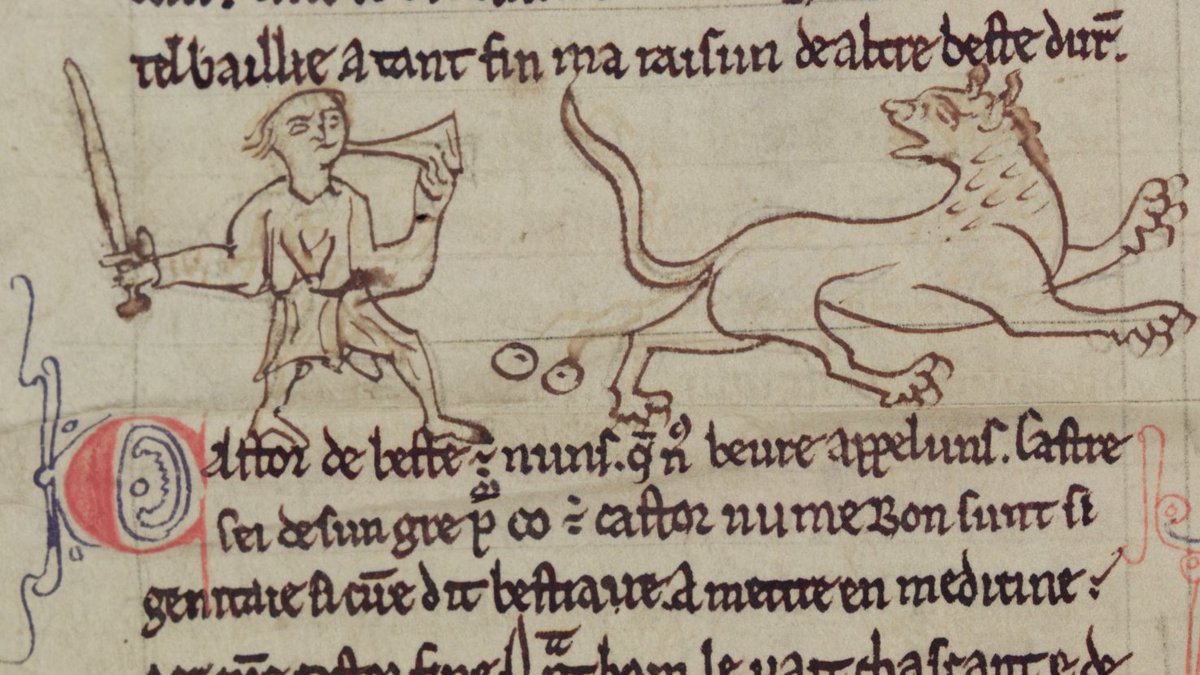 tel baillie A tant fin ma raisun de altre beste dur̄.
Castor de beste ÷ nuns. q̄ nꝰ beure appeluns. Sastre
sei de sun gre p co ÷ castor nume Bon sunt si
genitaie si cūe dit bestiaire. A mettre en medicine
hom le vait chascant e de